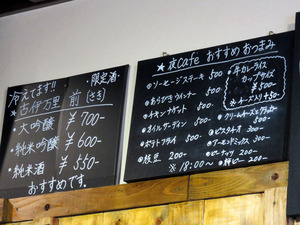 限定酒
冷えてます!!
★古伊万里 前(さき)
・大吟醸 ¥700-
・純米吟醸 ¥600-
・純米酒 ¥550-
おすすめです。
★夜Cafe おすすめおつまみ
・ソーセージステーキ 500
・あらびきウインナー 500-
・チキンナゲット 500-
・オイルサーディン 500-
・ポテトフライ 500-
・枝豆 200-
※18:00〜
・牛カレーライス
カップサイズ
¥500-
※チーズ入り+50-
・クリームチーズとクラッカー 500-
・ピスタチオ 300-
・アーモンドミックス 300-
・ピーナッツ 200-
・柿ピー 200-